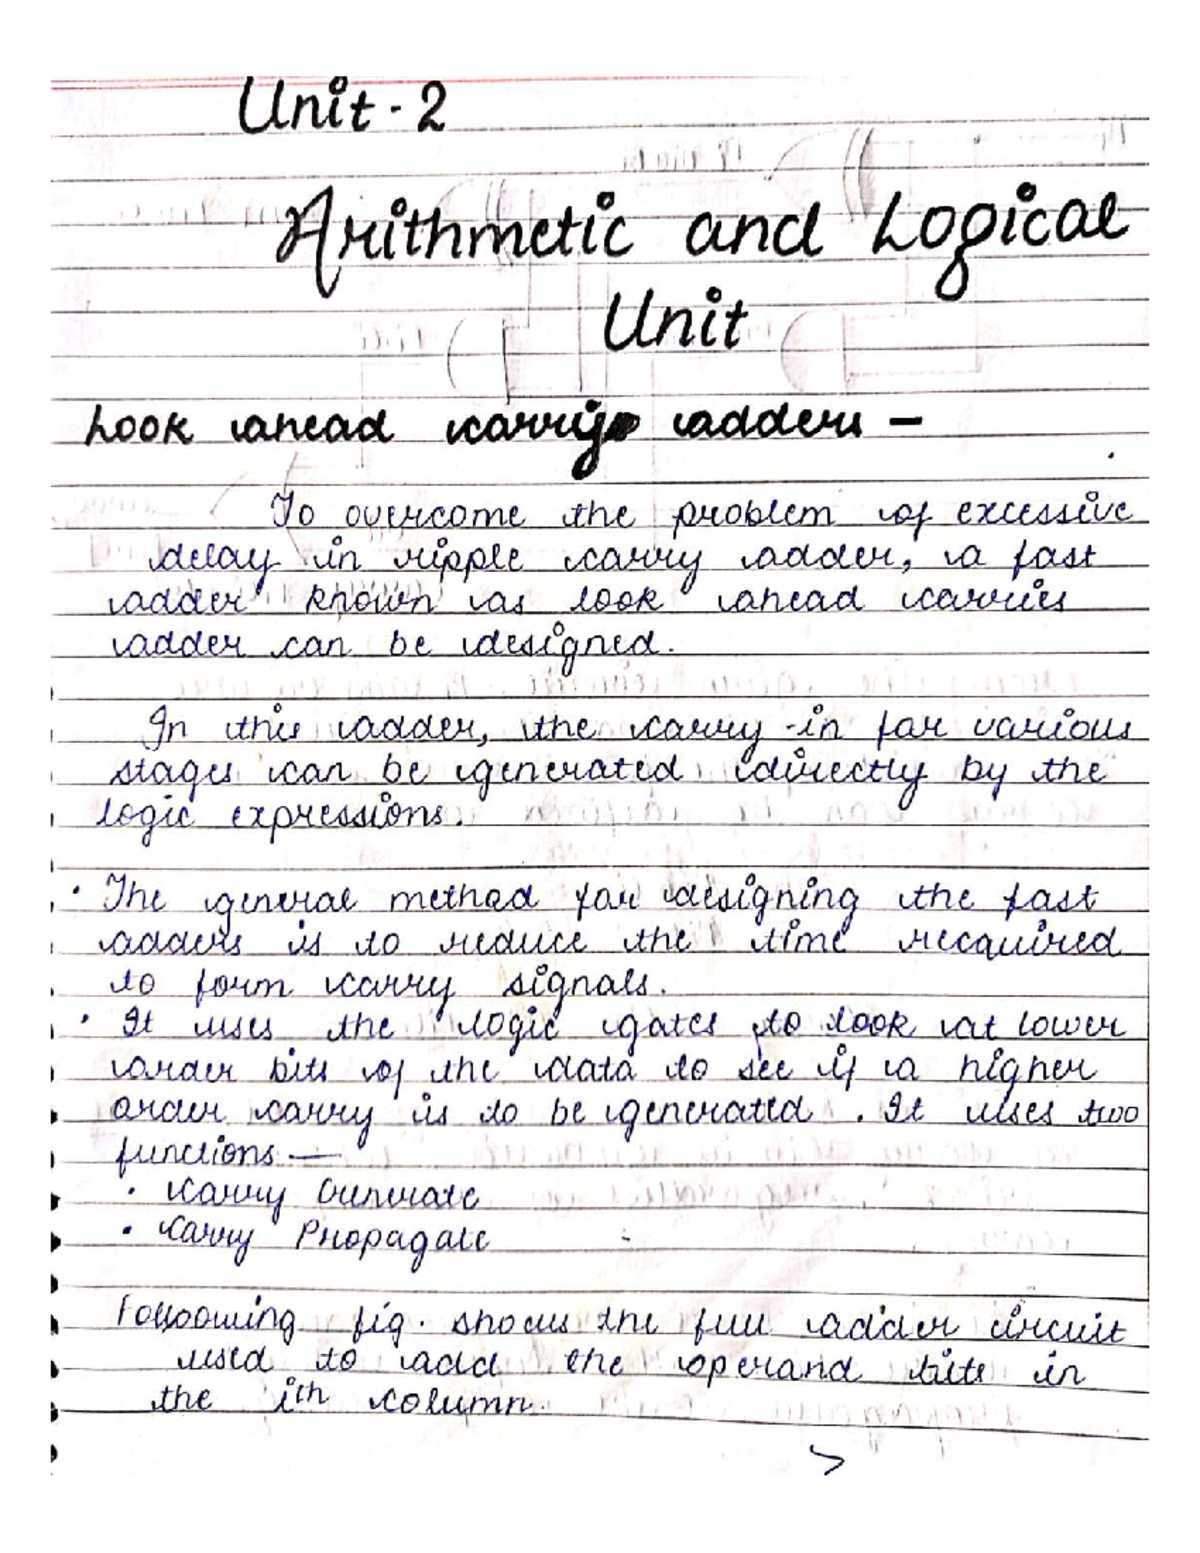 Unit - 2
Arithmetic and Logical
Unit
Look ahead carry adders -
To overcome the problem of excessive
delay in ripple carry adder, a fast
adder known as look ahead carries
adder can be designed.
In this adder, the carry-in for various
stages can be generated directly by the
logic expressions.
• The general method for designing the fast
adders is to reduce the time recquired
to form carry signals.
• It uses the logic gates to look at lower
order bits of the data to see if a higher
order carry is to be generated. It uses two
functions —
• Carry Generate
• Carry Propagate
Following fig. shows the full adder circuit
used to add the operand bits in
the ith column.
>